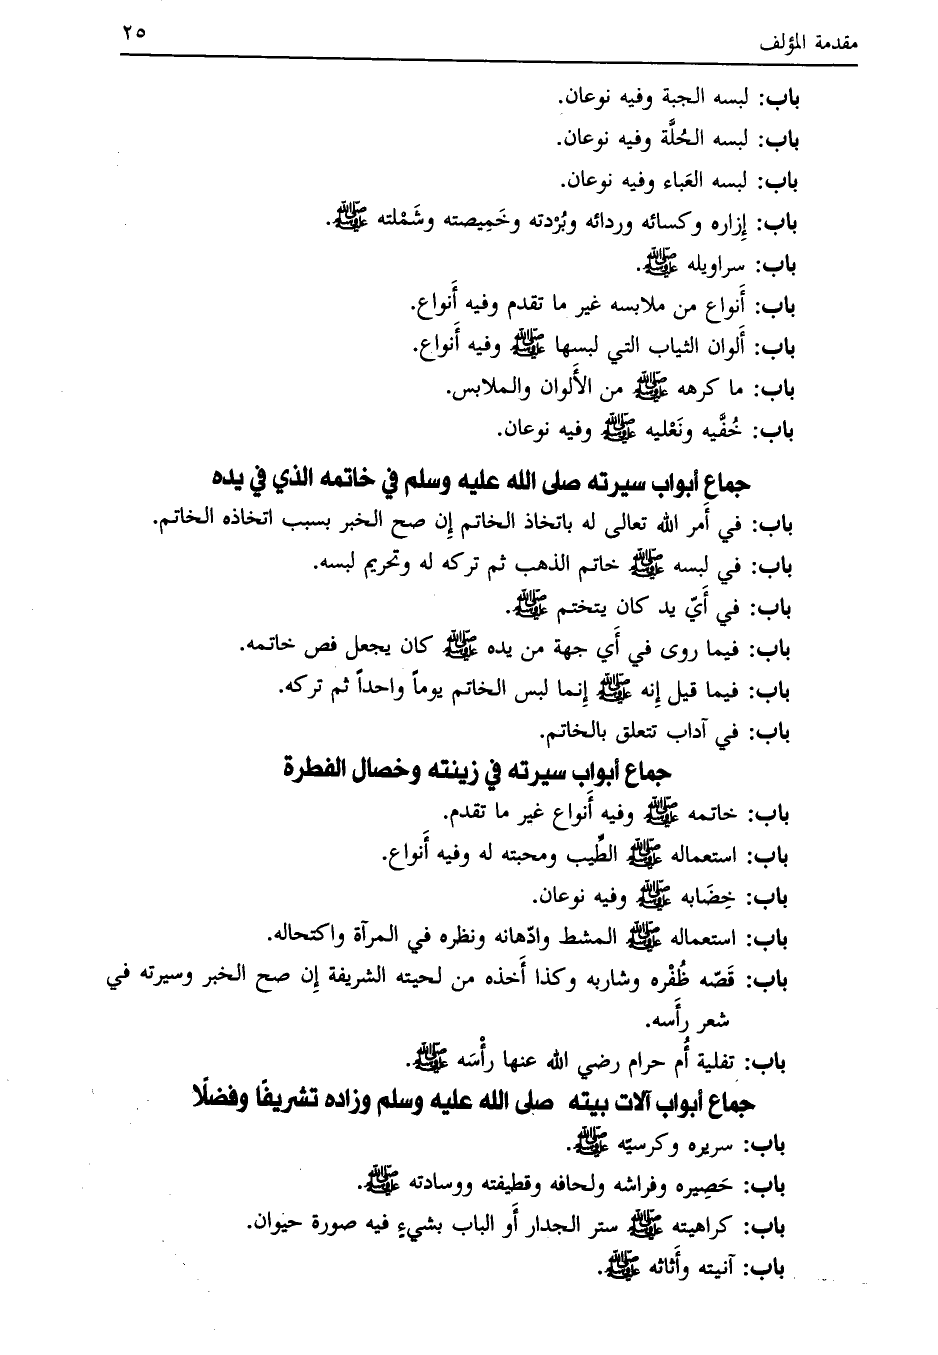 مقدمة المؤلف ٢٥
باب: لبسه الجبة وفيه نوعان.
باب: لبسه الحُلَّة وفيه نوعان.
باب: لبسه العَباء وفيه نوعان.
باب: إزاره وكسائه وردائه وبُرْدته وخَمِيصته وشَمْلته ﷺ.
باب: سراويله ﷺ.
باب: أنواع من ملابسه غير ما تقدم وفيه أنواع.
باب: ألوان الثياب التي لبسها ﷺ وفيه أنواع.
باب: ما كرهه ﷺ من الألوان والملابس.
باب: خُفَّيه ونَعْليه ﷺ وفيه نوعان.
جماع أبواب سيرته صلى الله عليه وسلم في خاتمه الذي في يده
باب: في أمر الله تعالى له باتخاذ الخاتم إن صح الخبر بسبب اتخاذه الخاتم.
باب: في لبسه ﷺ خاتم الذهب ثم تركه له وتحريم لبسه.
باب: في أَيّ يد كان يتختم ﷺ.
باب: فيما روى في أي جهة من يده ﷺ كان يجعل فص خاتمه.
باب: فيما قيل إنه ﷺ إنما لبس الخاتم يوماً واحداً ثم تركه.
باب: في آداب تتعلق بالخاتم.
جماع أبواب سيرته في زينته وخصال الفطرة
باب: خاتمه ﷺ وفيه أنواع غير ما تقدم.
باب: استعماله ﷺ الطِّيب ومحبته له وفيه أنواع.
باب: خِضَابه ﷺ وفيه نوعان.
باب: استعماله ﷺ المشط وادّهانه ونظره في المرآة واكتحاله.
باب: قَصّه ظُفْره وشاربه وكذا أخذه من لحيته الشريفة إن صح الخبر وسيرته في
شعر رأسه.
باب: تفلية أُم حرام رضي الله عنها رأْسَه ﷺ.
جماع أبواب آلات بيته صلى الله عليه وسلم وزاده تشريفًا وفضلًا
باب: سريره وكرسيّه ﷺ.
باب: حَصِيره وفراشه ولحافه وقطيفته ووسادته ﷺ.
باب: كراهيته ﷺ ستر الجدار أو الباب بشيءٍ فيه صورة حيوان.
باب: آنيته وأَثاثه ﷺ.